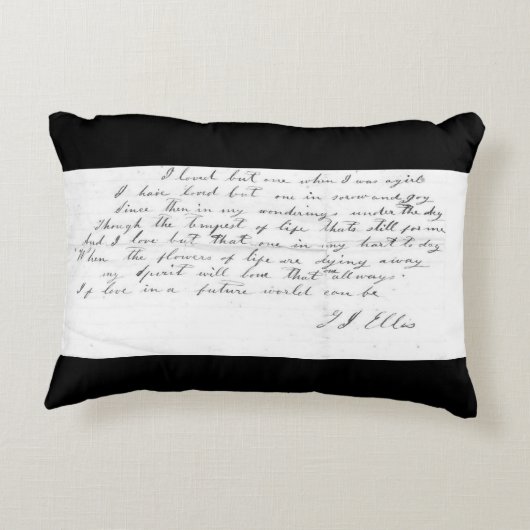 I loved but one when I was a girl
I have loved but one in sorow and joy
Since then in my wonderings under the sky
Though the tempest of life thats still for me
And I love but that one in my hart to day
When the flowers of life are dying away
my spirit will lead that one allways
If love in a future world can be
G J Ellis